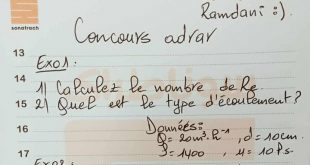 sonatrach
Ramdani :).
Concours adrar
13
Exo1:
14
1) Calculez le nombre de Re
15 2) Quel est le type d'écoulement?
Données:
16 Q = 20 m³.h⁻¹, d = 10cm.
17 Exo2: ρ = 1400, μ = 10 Ps.